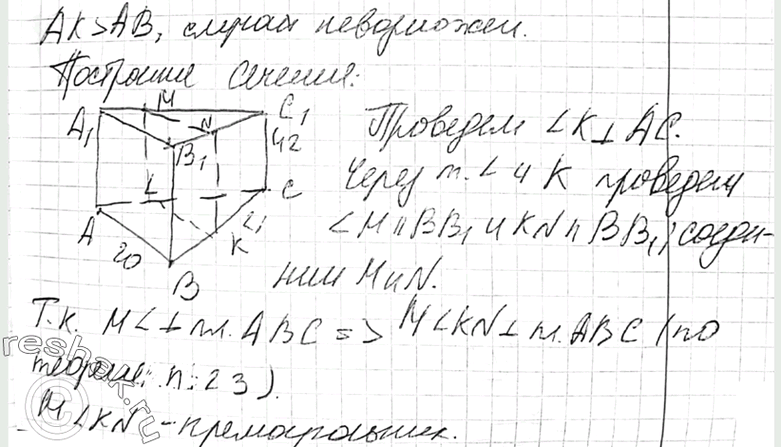 AK > AB, случай невозможен.
Построим сечение:
M
A₁
N
C₁
B₁
42
L
C
A
21
K
20
B
Проведем LK ⊥ AC.
Через т. L и K проведем
LM ∥ BB₁ и KN ∥ BB₁, соеди-
ним M и N.
Т.к. ML ⊥ пл. ABC => MLKN ⊥ пл. ABC (по
теореме п. 23).
MLKN - прямоугольник.
reshak.ru